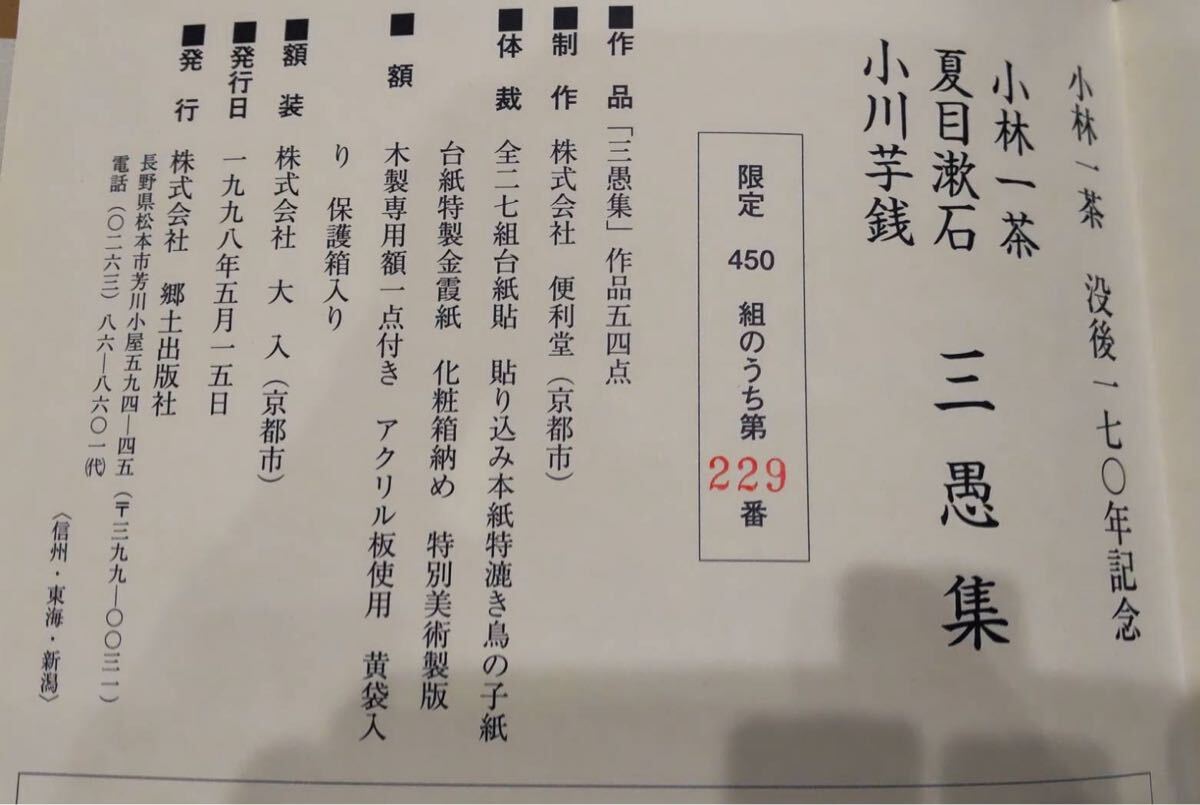 小林一茶　没後一七〇年記念
小林一茶
夏目漱石　三愚集
小川芋銭
限定　450　組のうち第229番
■作　品　「三愚集」作品五四点
■制　作　株式会社　便利堂（京都市）
■体　裁　全二七組台紙貼　貼り込み本紙特漉き鳥の子紙
台紙特製金霞紙　化粧箱納め　特別美術製版
■　額　木製専用額一点付き　アクリル板使用　黄袋入
り　保護箱入り
■額　装　株式会社　大　入（京都市）
■発行日　一九九八年五月一五日
■発　行　株式会社　郷土出版社
長野県松本市芳川小屋五九四―四五（〒三九九―〇〇三一）
電話（〇二六三）八六―八六〇一㈹
〈信州・東海・新潟〉